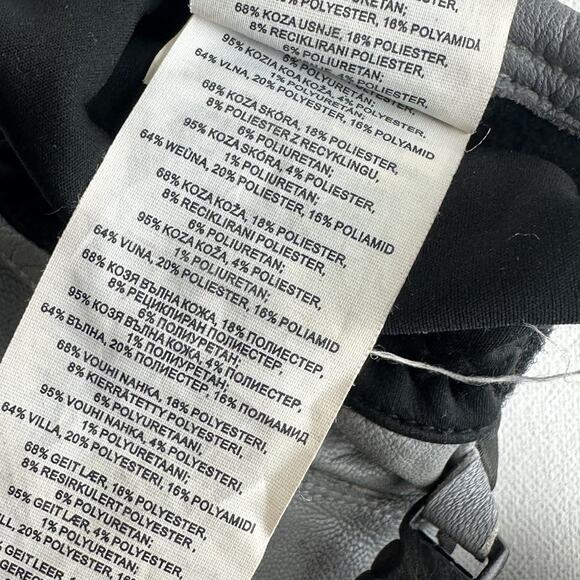 POLIURETAN;
% POLYESTER, 16% POLYAMIDĂ
68% KOZA USNJE, 18% POLIESTER,
8% RECIKLIRANI POLIESTER,
6% POLIURETAN;
95% KOZIA KOA KOŽA, 4% POLYESTER,
1% POLYURETAN;
64% VLNA, 20% POLYESTER, 16% POLYAMID
68% KOZA SKÓRA, 18% POLIESTER,
8% POLIESTER Z RECYKLINGU,
6% POLIURETAN;
95% KOZA SKÓRA, 4% POLIESTER,
1% POLIURETAN;
64% WEŪNA, 20% POLIESTER, 16% POLIAMID
68% KOZA KOŽA, 18% POLIESTER,
8% RECIKLIRANI POLIESTER,
6% POLIURETAN;
95% KOZA KOŽA, 4% POLIESTER,
1% POLIURETAN;
64% VUNA, 20% POLIESTER, 16% POLIAMID
68% КОЗЯ ВЪЛНА КОЖА, 18% ПОЛИЕСТЕР,
8% РЕЦИКЛИРАН ПОЛИЕСТЕР,
6% ПОЛИУРЕТАН;
95% КОЗЯ ВЪЛНА КОЖА, 4% ПОЛИЕСТЕР,
1% ПОЛИУРЕТАН;
64% ВЪЛНА, 20% ПОЛИЕСТЕР, 16% ПОЛИАМИД
68% VOUHI NAHKA, 18% POLYESTERI,
8% KIERRÄTETTY POLYESTERI,
6% POLYURETAANI;
95% VOUHI NAHKA, 4% POLYESTERI,
1% POLYURETAANI;
64% VILLA, 20% POLYESTERI, 16% POLYAMIDI
68% GEITLÆR, 18% POLYESTER,
8% RESIRKULERT POLYESTER,
6% POLYURETAN;
95% GEITLÆR, 4% POLYESTER,
1% POLYURETAN;
LL, 20% POLYESTER, 16%
% GEIT LEER, 1